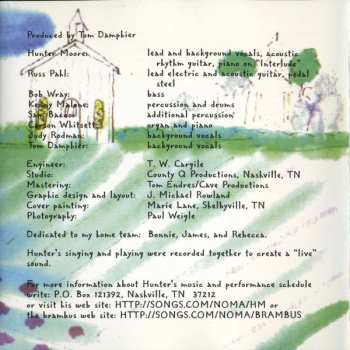 Produced by Tom Damphier
Hunter Moore: lead and background vocals, acoustic
rhythm guitar, piano on "Interlude"
Russ Pahl: lead electric and acoustic guitar, pedal
steel
Bob Wray: bass
Kenny Malone: percussion and drums
Sam Bacco: additional percussion
Carson Whitsett: organ and piano
Judy Rodman: background vocals
Tom Damphier: background vocals
Engineer: T. W. Cargile
Studio: County Q Productions, Nashville, TN
Mastering: Tom Endres/Cave Productions
Graphic design and layout: J. Michael Rowland
Cover painting: Marie Lane, Shelbyville, TN
Photography: Paul Weigle
Dedicated to my home team: Bonnie, James, and Rebecca.
Hunter's singing and playing were recorded together to create a "live"
sound.
For more information about Hunter's music and performance schedule
write: P.O. Box 121392, Nashville, TN 37212
or visit his web site: HTTP://SONGS.COM/NOMA/HM or
the brambus web site: HTTP://SONGS.COM/NOMA/BRAMBUS